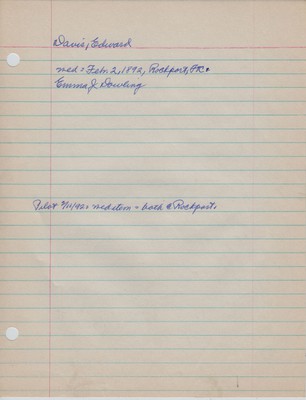 Davis, Edward
med = Feb. 2, 1892, Rockport, PR.
Emma J. Dowling
Pilot 3/11/92: med item - both of Rockport.